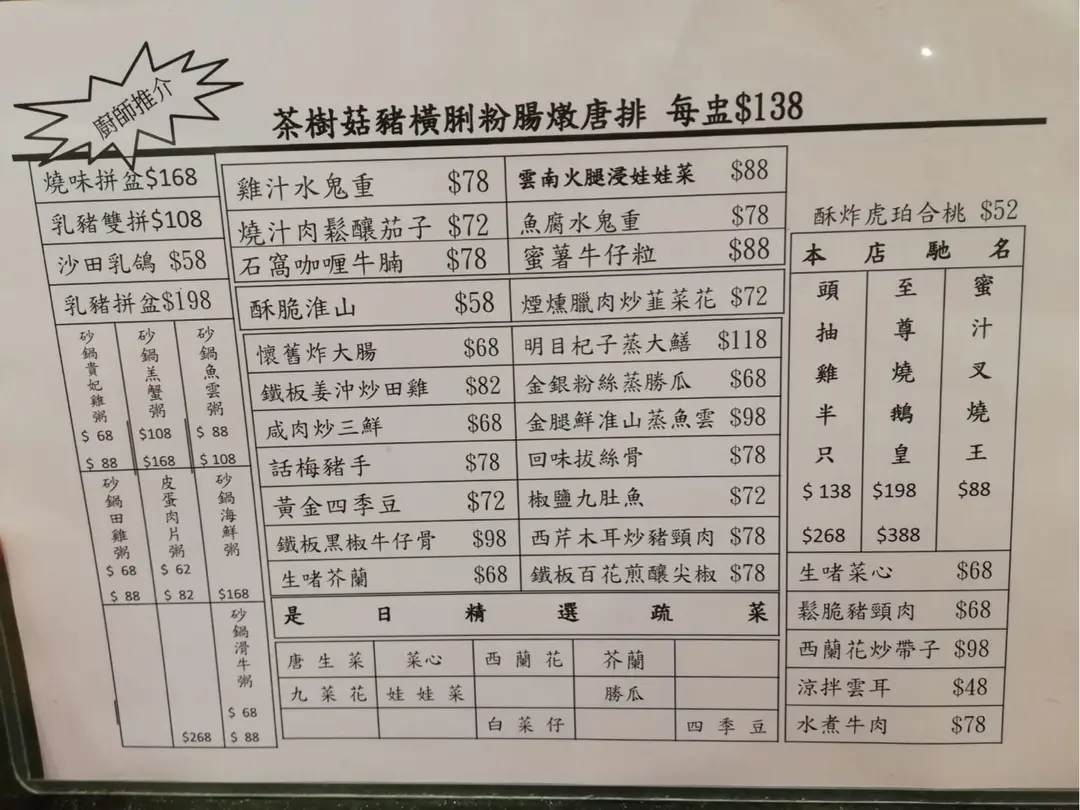 廚師推介
茶樹菇豬橫脷粉腸燉唐排 每盅$138
燒味拼盆$168
乳豬雙拼$108
沙田乳鴿 $58
乳豬拼盆$198
砂鍋貴妃雞粥
$ 68
$ 88
砂鍋羔蟹粥
$108
$168
砂鍋魚雲粥
$ 88
$ 108
砂鍋田雞粥
$ 68
$ 88
皮蛋肉片粥
$ 62
$ 82
砂鍋海鮮粥
$168
$268
砂鍋滑牛粥
$ 68
$ 88
雞汁水鬼重 $78
燒汁肉鬆釀茄子 $72
石窩咖喱牛腩 $78
酥脆淮山 $58
懷舊炸大腸 $68
鐵板姜沖炒田雞 $82
咸肉炒三鮮 $68
話梅豬手 $78
黃金四季豆 $72
鐵板黑椒牛仔骨 $98
生啫芥蘭 $68
雲南火腿浸娃娃菜 $88
魚腐水鬼重 $78
蜜薯牛仔粒 $88
煙燻臘肉炒韮菜花 $72
明目杞子蒸大鱔 $118
金銀粉絲蒸勝瓜 $68
金腿鮮淮山蒸魚雲 $98
回味拔絲骨 $78
椒鹽九肚魚 $72
西芹木耳炒豬頸肉 $78
鐵板百花煎釀尖椒 $78
是日精選疏菜
唐生菜 菜心 西蘭花 芥蘭
九菜花 娃娃菜 勝瓜
白菜仔 四季豆
酥炸虎珀合桃 $52
本店馳名
頭抽雞半只
$ 138
$268
至尊燒鵝皇
$198
$388
蜜汁叉燒王
$88
生啫菜心 $68
鬆脆豬頸肉 $68
西蘭花炒帶子 $98
涼拌雲耳 $48
水煮牛肉 $78